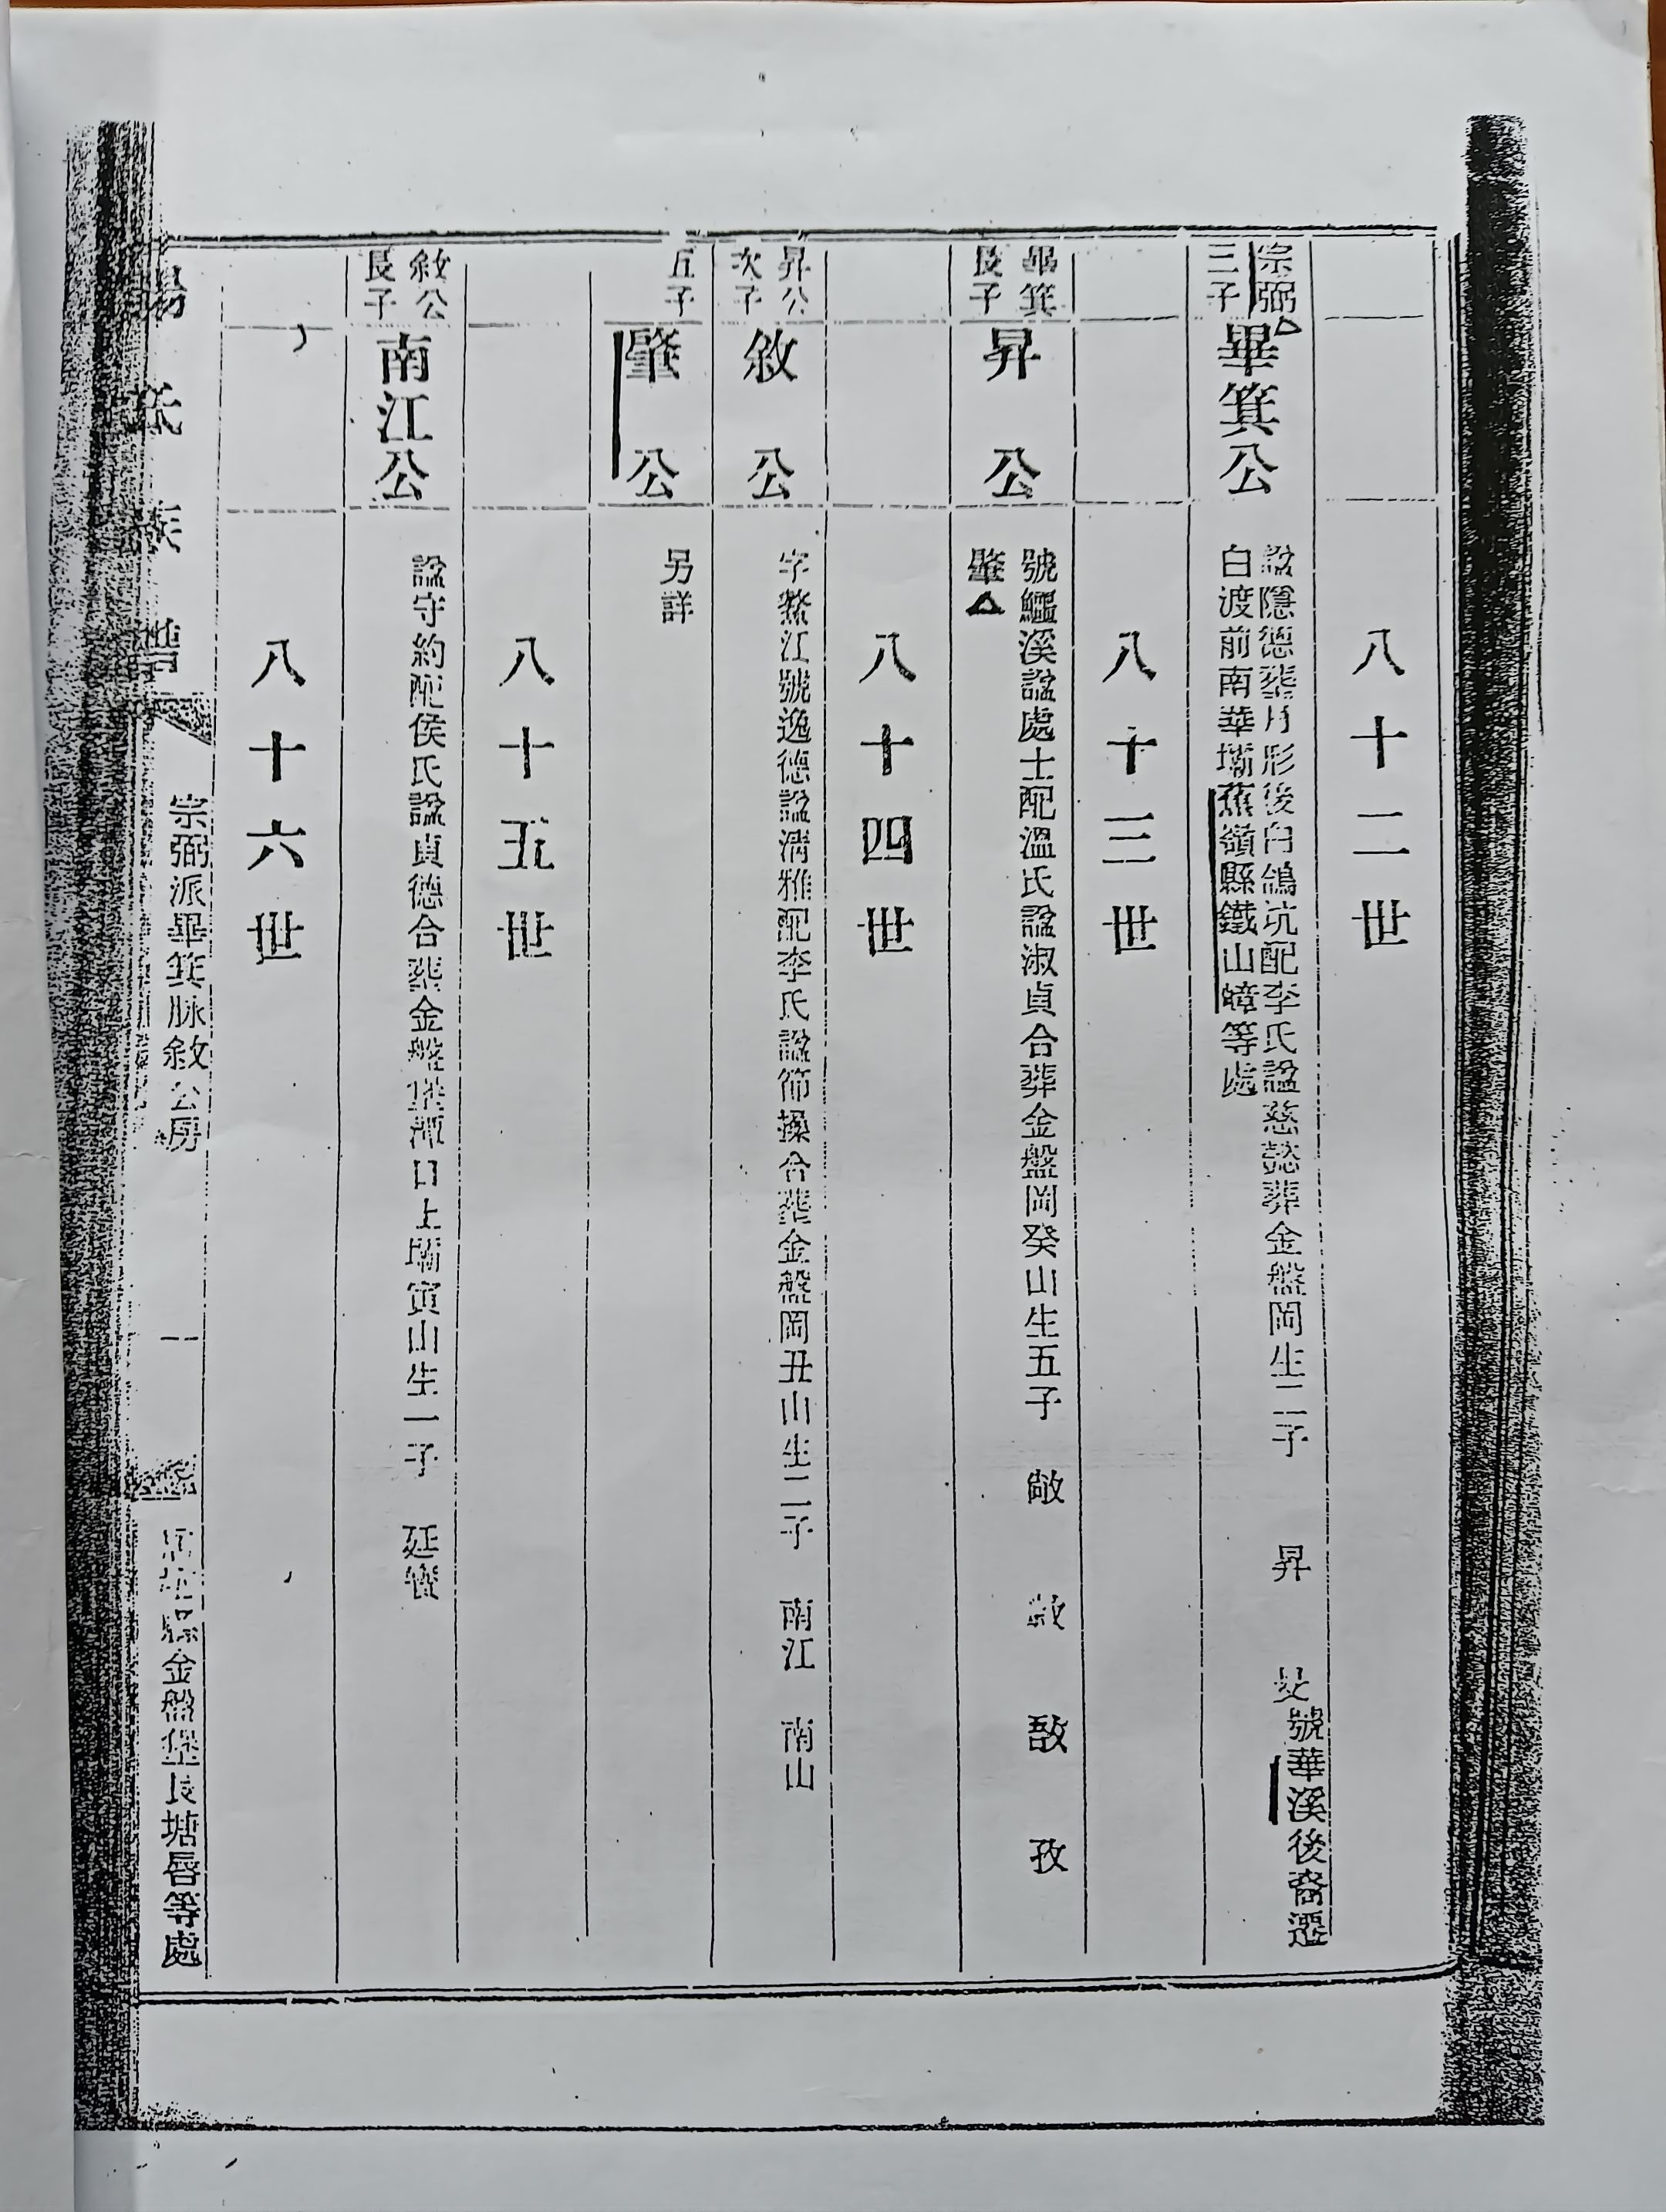 八十二世
宗弼
三子
畢箕公
諡隱德葬月形後白鴿坑配李氏諡慈懿葬金盤岡生二子 昇 㳟號華溪後裔遷
白渡前南華壩蕉嶺縣鐵山嶂等處
八十三世
畢箕
長子
昇公
號鱷溪諡處士配溫氏諡淑貞合葬金盤岡癸山生五子 敞 敘 敔 孜
肇
八十四世
昇公
次子
敘公
字鰲江號逸德諡清雅配李氏諡節操合葬金盤岡丑山生二子 南江 南山
五子
肇公
另詳
八十五世
敘公
長子
南江公
諡守約配侯氏諡貞德合葬金盤堡潭口上壩寅山生一子 延
八十六世
楊氏族譜
宗弼派畢箕脉敘公房
一
縣金盤堡長塘唇等處